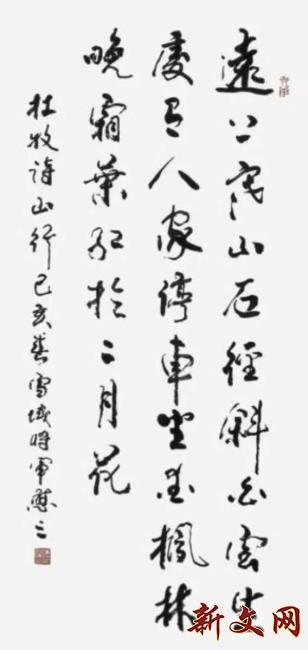 遠上寒山石徑斜白雲生
處有人家停車坐愛楓林
晚霜葉紅於二月花
杜牧詩山行己亥春雪域將軍
新文网